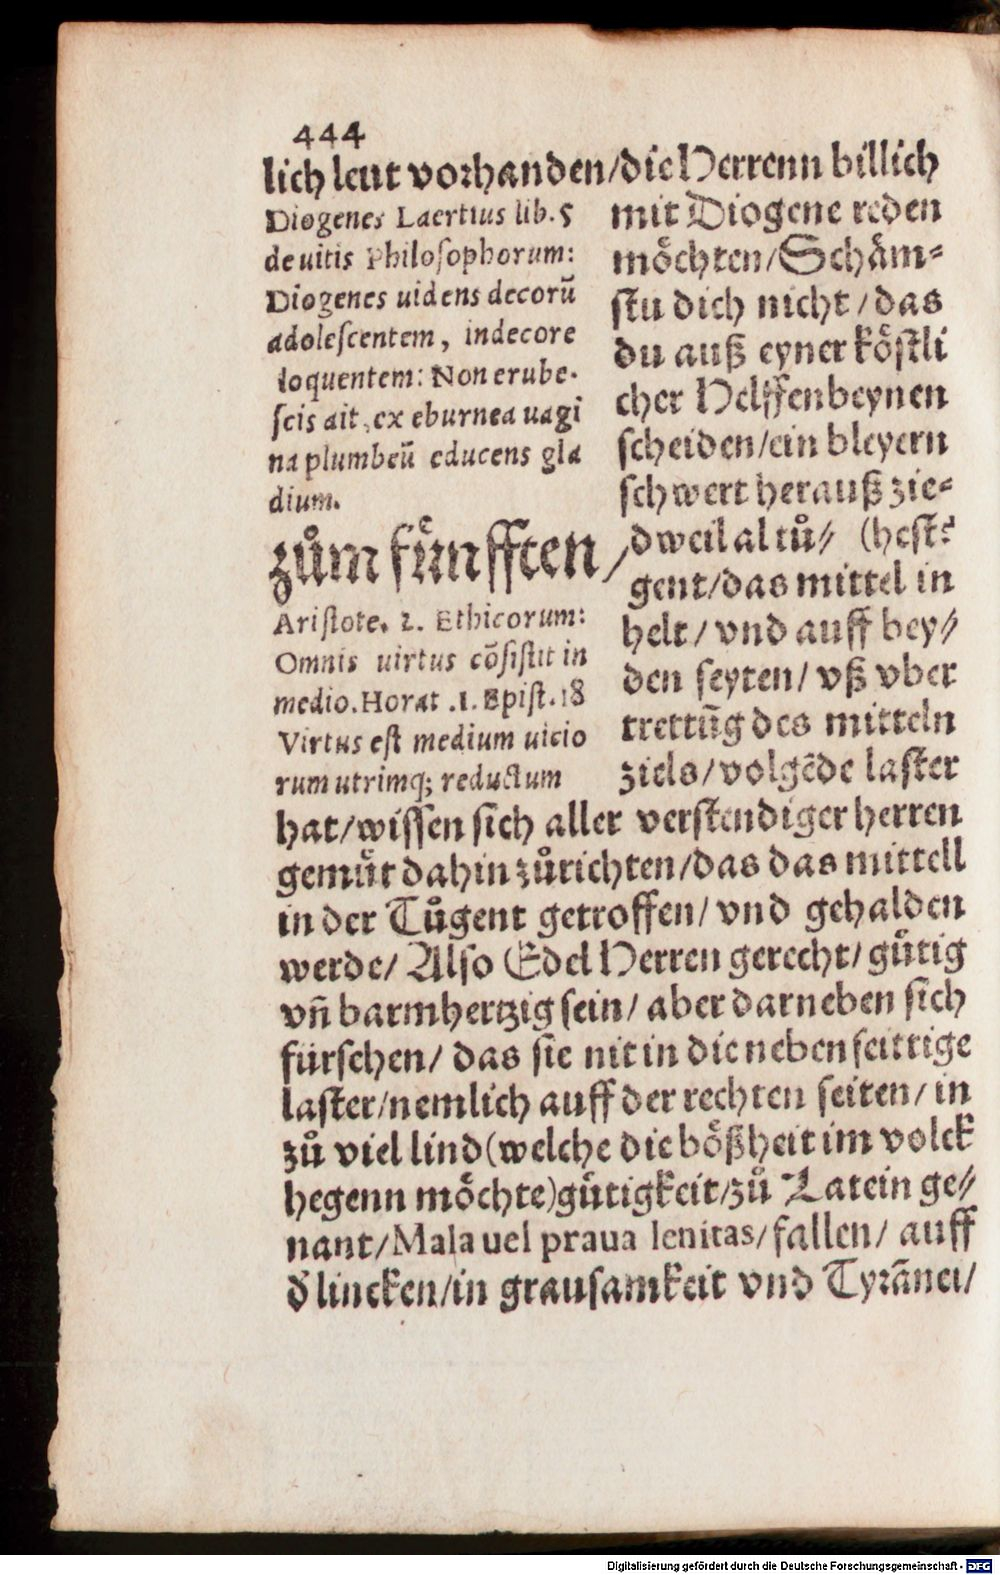 444
lich leut vorhanden/die Herrenn billich
Diogenes Laertius lib. 5
de uitis Philosophorum:
Diogenes uidens decorũ
adolescentem, indecore
loquentem: Non erube-
scis ait, ex eburnea uagi
na plumbeũ educens gla
dium.
mit Diogene reden
moͤchten/Schaͤm⸗
stu dich nicht/das
du auß eyner koͤstli
cher Helffenbeynen
scheiden/ein bleyern
schwert herauß zie⸗
(hest?
zům fuͤnfften/dweil al tů⸗
Aristote. 2. Ethicorum:
Omnis uirtus cõsistit in
medio. Horat .1. Epist. 18
Virtus est medium uicio
rum utrimq; reductum
gent/das mittel in
helt/vnd auff bey⸗
den seyten/vß vber
trettũg des mitteln
ziels/volgẽde laster
hat/wissen sich aller verstendiger herren
gemuͤt dahin zůrichten/das das mittell
in der Tůgent getroffen/vnd gehalden
werde/Also Edel Herren gerecht/guͤtig
vñ barmhertzig sein/aber darneben sich
fürsehen/das sie nit in die nebenseittige
laster/nemlich auff der rechten seiten/in
zů viel lind(welche die boͤßheit im volck
hegenn moͤchte)guͤtigkeit/zů Latein ge⸗
nant/Mala uel praua lenitas/fallen/auff
d̕ lincken/in grausamkeit vnd Tyrãnei/
Digitalisierung gefördert durch die Deutsche Forschungsgemeinschaft - DFG